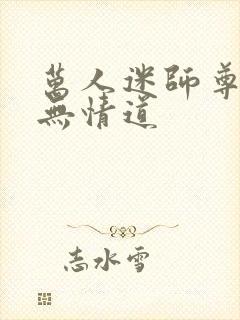 萬人迷師尊
無情道
志水雪